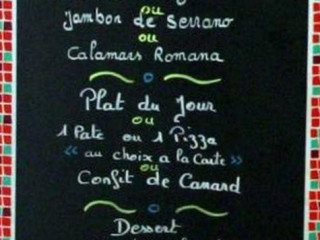 ou
Jambon de Serrano
ou
Calamars Romana
Plat du Jour
ou
1 Pate ou 1 Pizza
« au choix a la Carte »
ou
Confit de Canard
Dessert